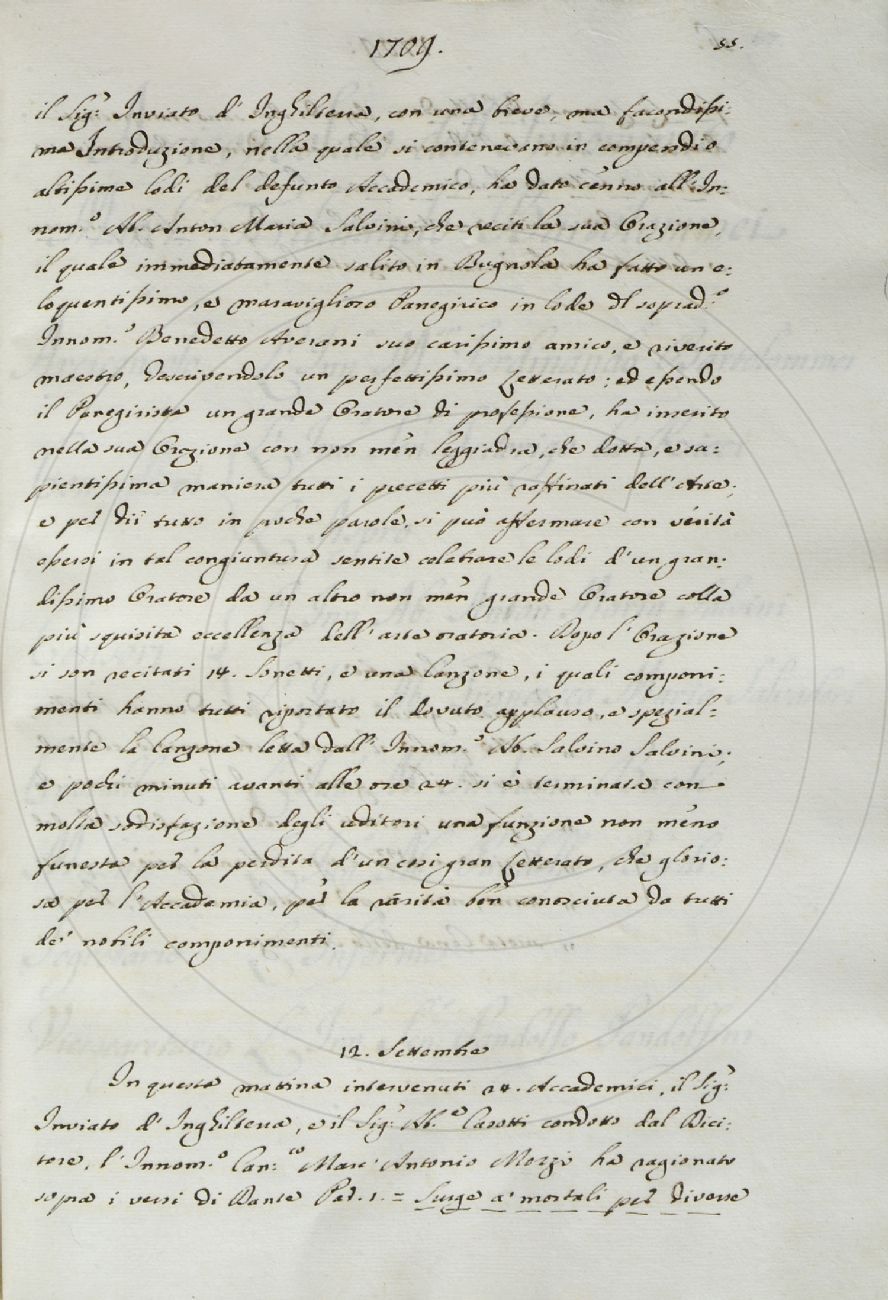 1709.
55.
il Sig.r Inviato d' Inghilterra, con una breve, ma facondissi:
ma Introduzione, nella quale si contenevano in compendio
altissime lodi del defunto Accademico, ha dato cenno all' In:
nom.o Ab. Anton Maria Salvini, che reciti la sua Orazione,
il quale immediatamente salito in Bugnola ha fatto un e:
loquentissimo, e maraviglioso Panegirico in lode dl soprad.o
Innom.o Benedetto Averani suo carissimo amico, e riverito
maestro, descrivendolo un perfettissimo Letterato; ed essendo
il Panegirista un grande Oratore di professione, ha inserito
nella sua Orazione con non men leggiadra, che dotta, e sa:
pientissima maniera tutti i precetti più raffinati dell' Arte;
e per dir tutto in poche parole, si può affermare con verità
essersi in tal congiuntura sentite celebrare le lodi d' un gran:
dissimo Oratore da un altro non men grande Oratore colla
più squisita eccellenza dell' arte oratoria. Dopo l' Orazione
si son recitati 14. Sonetti, e una Canzone, i quali componi:
menti hanno tutti riportato il dovuto applauso, e spezial:
mente la Canzone letta dall' Innom.o Ab. Salvino Salvini;
e pochi minuti avanti alle ore 24. si è terminata con
molta sodisfazione degli uditori una funzione non meno
funesta per la perdita d' un così gran Letterato, che glorio:
sa per l' Accademia, per la rarità ben conosciuta da tutti
de' nobili componimenti.
12. Settembre
In questa mattina intervenuti 24. Accademici, il Sig.r
Inviato d' Inghilterra, e il Sig.r Ab.e Casotti condotto dal Dici:
tore, l' Innom.o Can.co Marc' Antonio Mozzi ha ragionato
sopra i versi di Dante Par. 1. = Surge a' mortali per diverse